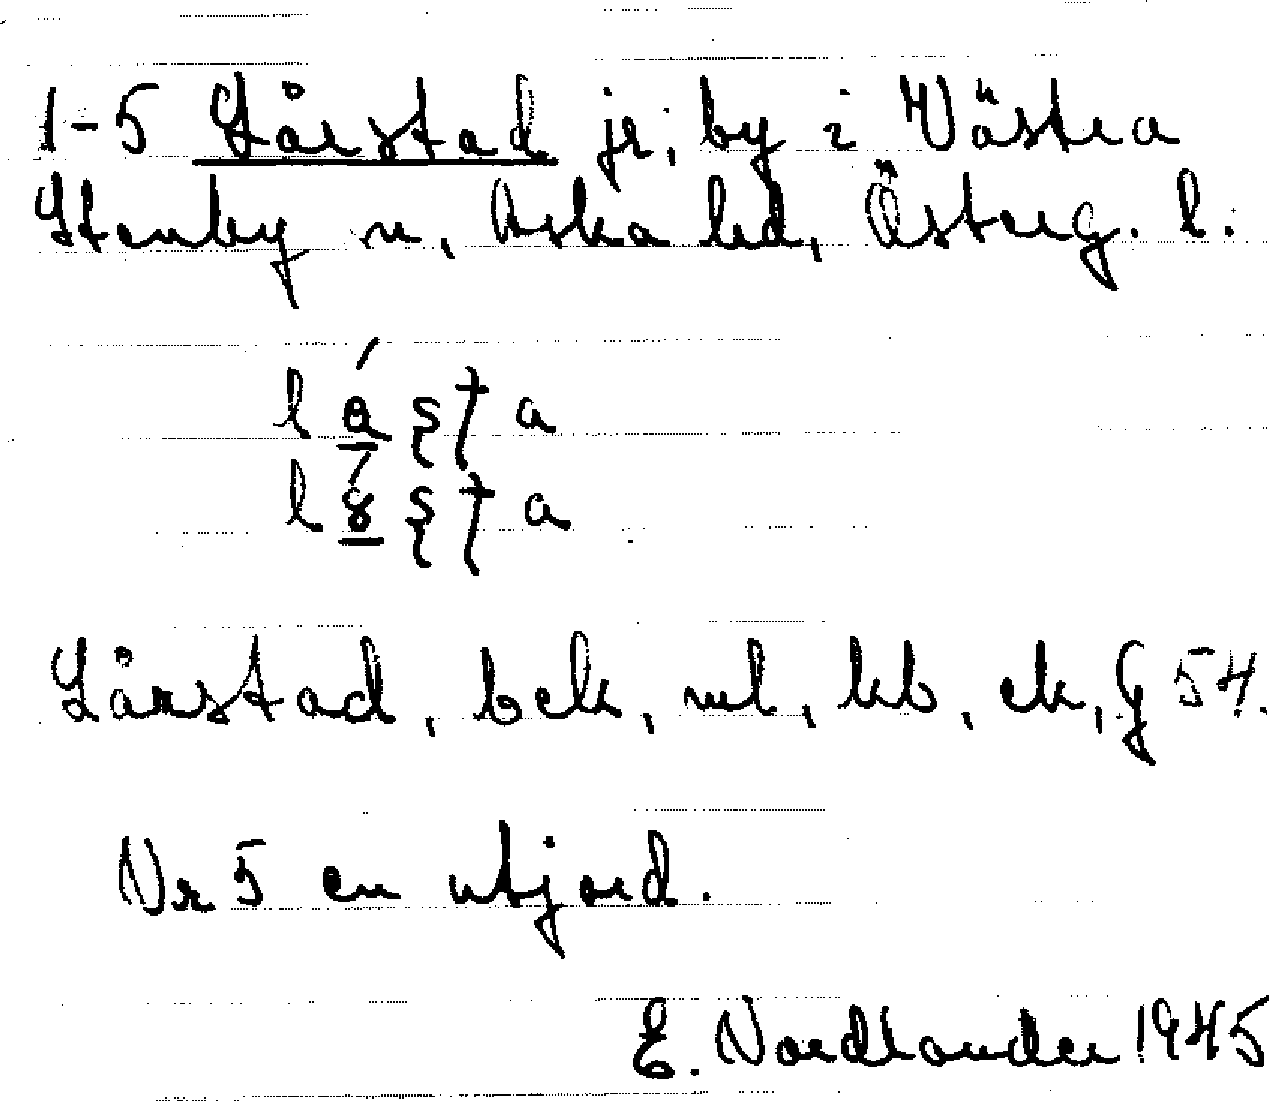 1-5 Lårstad jr, by i Västra
Stenby sn, Aska hd, Österg. l.
Lårstad, bck, ml, kb, ek, G 54.
Nr 5 en utjord.
E. Nordlander 1945